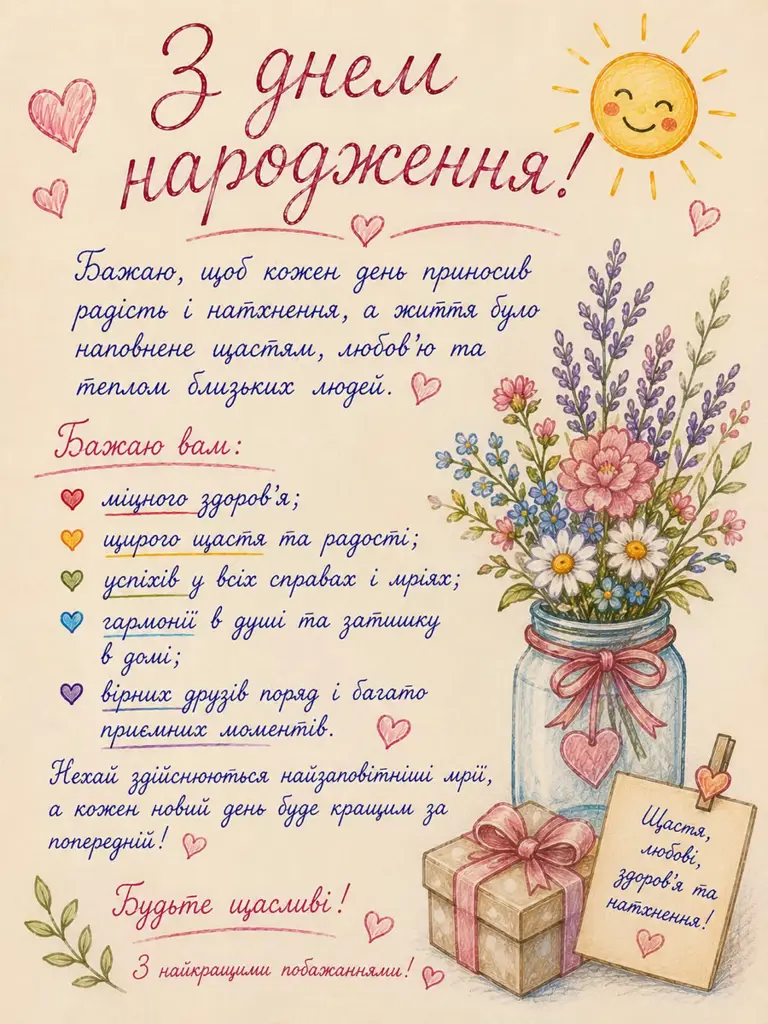 З днем
народження!
Бажаю, щоб кожен день приносив
радість і натхнення, а життя було
наповнене щастям, любов'ю та
теплом близьких людей.
Бажаю вам:
міцного здоров'я;
щирого щастя та радості;
успіхів у всіх справах і мріях;
гармонії в душі та затишку
в домі;
вірних друзів поряд і багато
приємних моментів.
Нехай здійснюються найзаповітніші мрії,
а кожен новий день буде кращим за
попередній!
Будьте щасливі!
З найкращими побажаннями!
Щастя,
любові,
здоров'я та
натхнення!